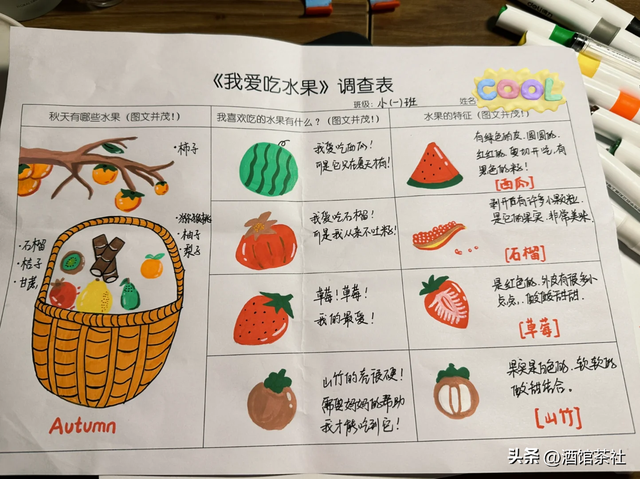 《我爱吃水果》调查表
班级：小(一)班
姓名
COOL
秋天有哪些水果（图文并茂！）
我喜欢吃的水果有什么？（图文并茂！）
水果的特征（图文并茂！）
·柿子
·猕猴桃
·柚子
·梨子
·石榴
·桔子
·甘蔗
Autumn
我爱吃西瓜！
可是它只有夏天有！
有绿色的皮、圆圆的、
红红的、要切开吃、有
黑色的籽！
[西瓜]
我爱吃石榴！
可是我从来不吐籽！
剥开有许多小颗粒、
是它的果实、非常美味
[石榴]
草莓！草莓！
我的最爱！
是红色的、外皮有很多小
点点、酸酸甜甜、
[草莓]
山竹的壳很硬！
需要妈妈的帮助
我才能吃到它！
果实是白色的、软软的
酸甜结合。
[山竹]
头条 @酒馆茶社